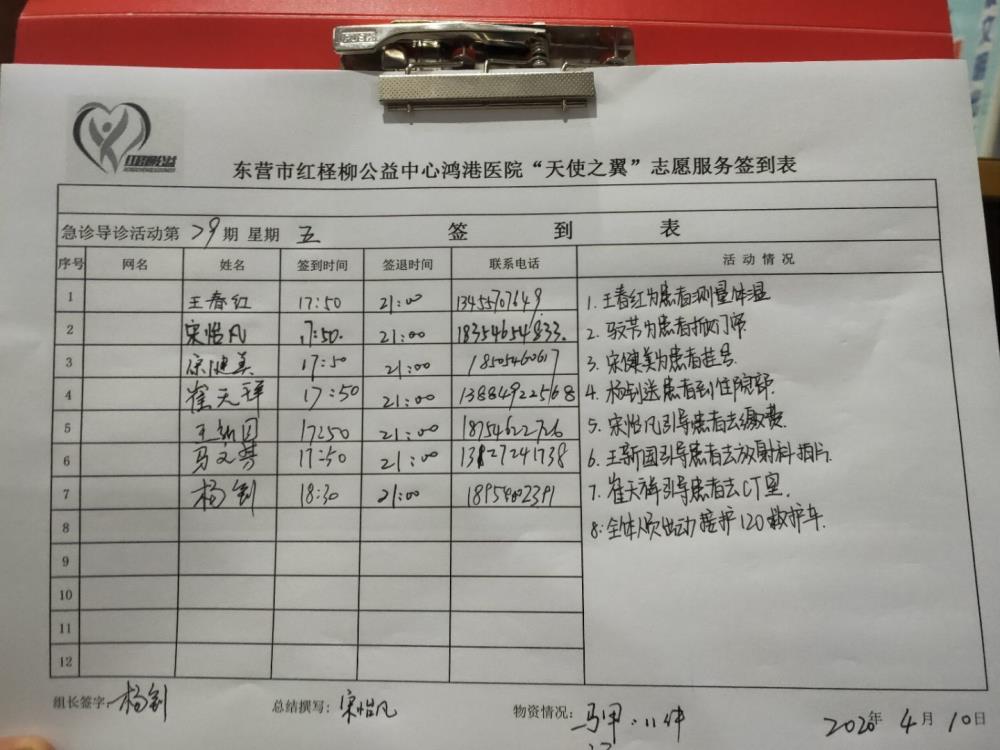 东营市红柽柳公益中心鸿港医院“天使之翼”志愿服务签到表
急诊导诊活动第 79 期 星期 五 签 到 表
序号 网名 姓名 签到时间 签退时间 联系电话 活 动 情 况
1 王春红 17:50 21:00 13455707649
2 宋怡凡 17:50. 21:00 18354654833.
3 宋健美 17:50 21:00 18505460617
4 崔天祥 17:50 21:00 13884922568
5 王新国 17:50 21:00 18754622726
6 马文芳 17:50 21:00 13827241738
7 杨钊 18:30 21:00
8
9
10
11
12
1. 王春红为患者测量体温
2. 为患者
3. 宋健美为患者挂号
4. 杨钊送患者到住院部.
5. 宋怡凡引导患者去缴费.
6. 王新国引导患者去放射科拍片.
7. 崔天祥引导患者去CT室.
8. 全体人员出动接护120救护车.
组长签字: 杨钊 总结撰写: 宋怡凡 物资情况: 马甲: 11件 2026年 4月 10日